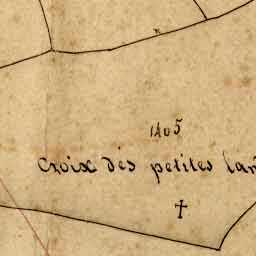 1405
Croix des petites